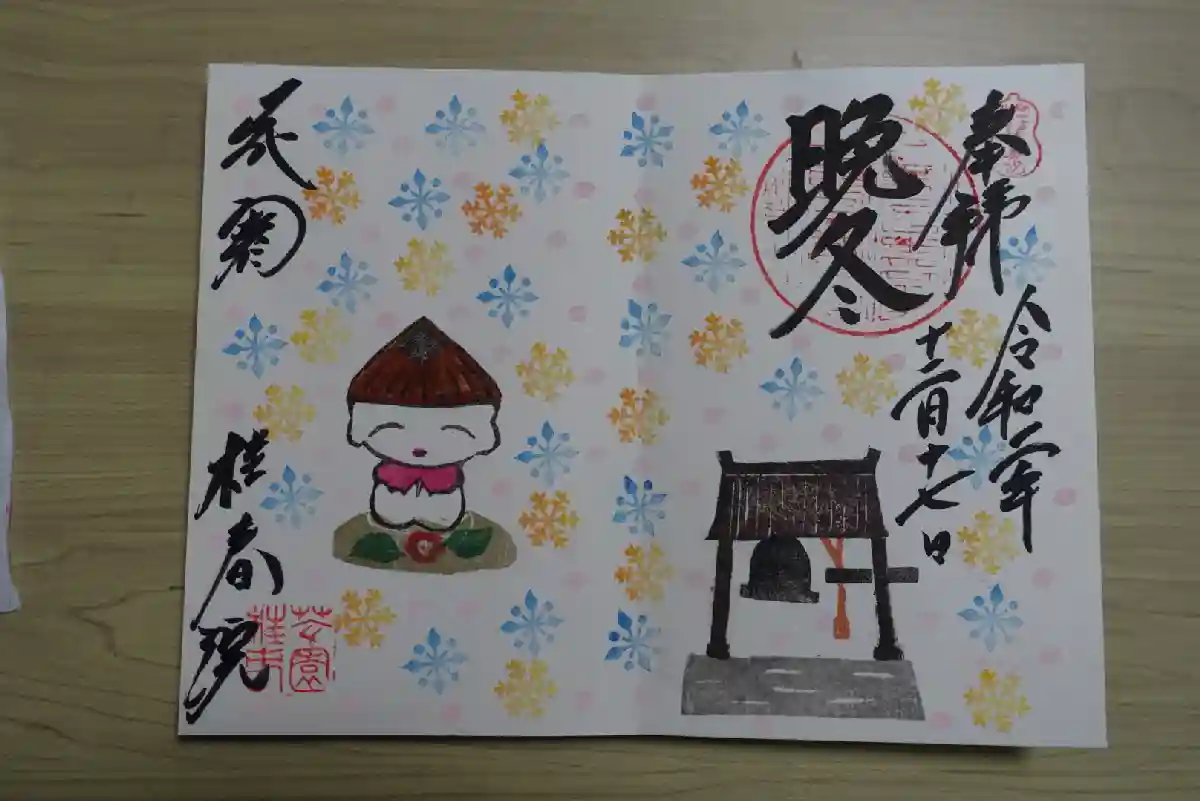 奉拝
令和二年
十二月十七日
晩冬
花園
桂春院